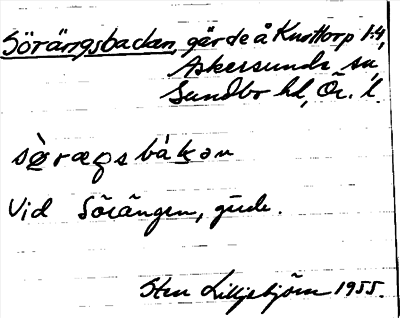 Sörängsbacken, gärde å Knottorp 1:4,
Askersunds sn,
Sundbo hd, Ör. l.
sö̀ræŋsbàkən
Vid Sörängen, gärde.
Sten Lilljebjörn 1955.